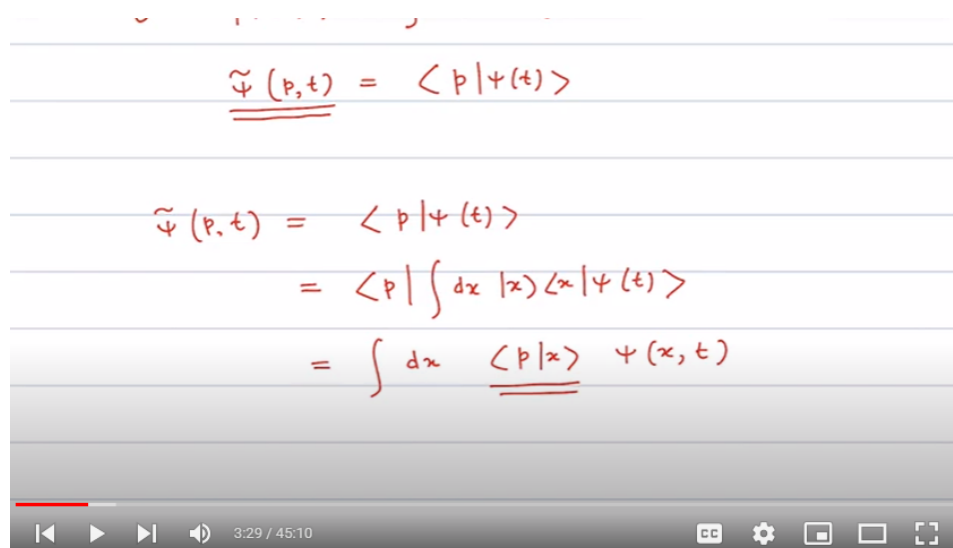 ψ̃ (p,t) = <p|ψ(t)>
ψ̃ (p,t) = <p|ψ(t)>
= <p| ∫ dx |x><x|ψ(t)>
= ∫ dx <p|x> ψ(x,t)
3:29 / 45:10
CC